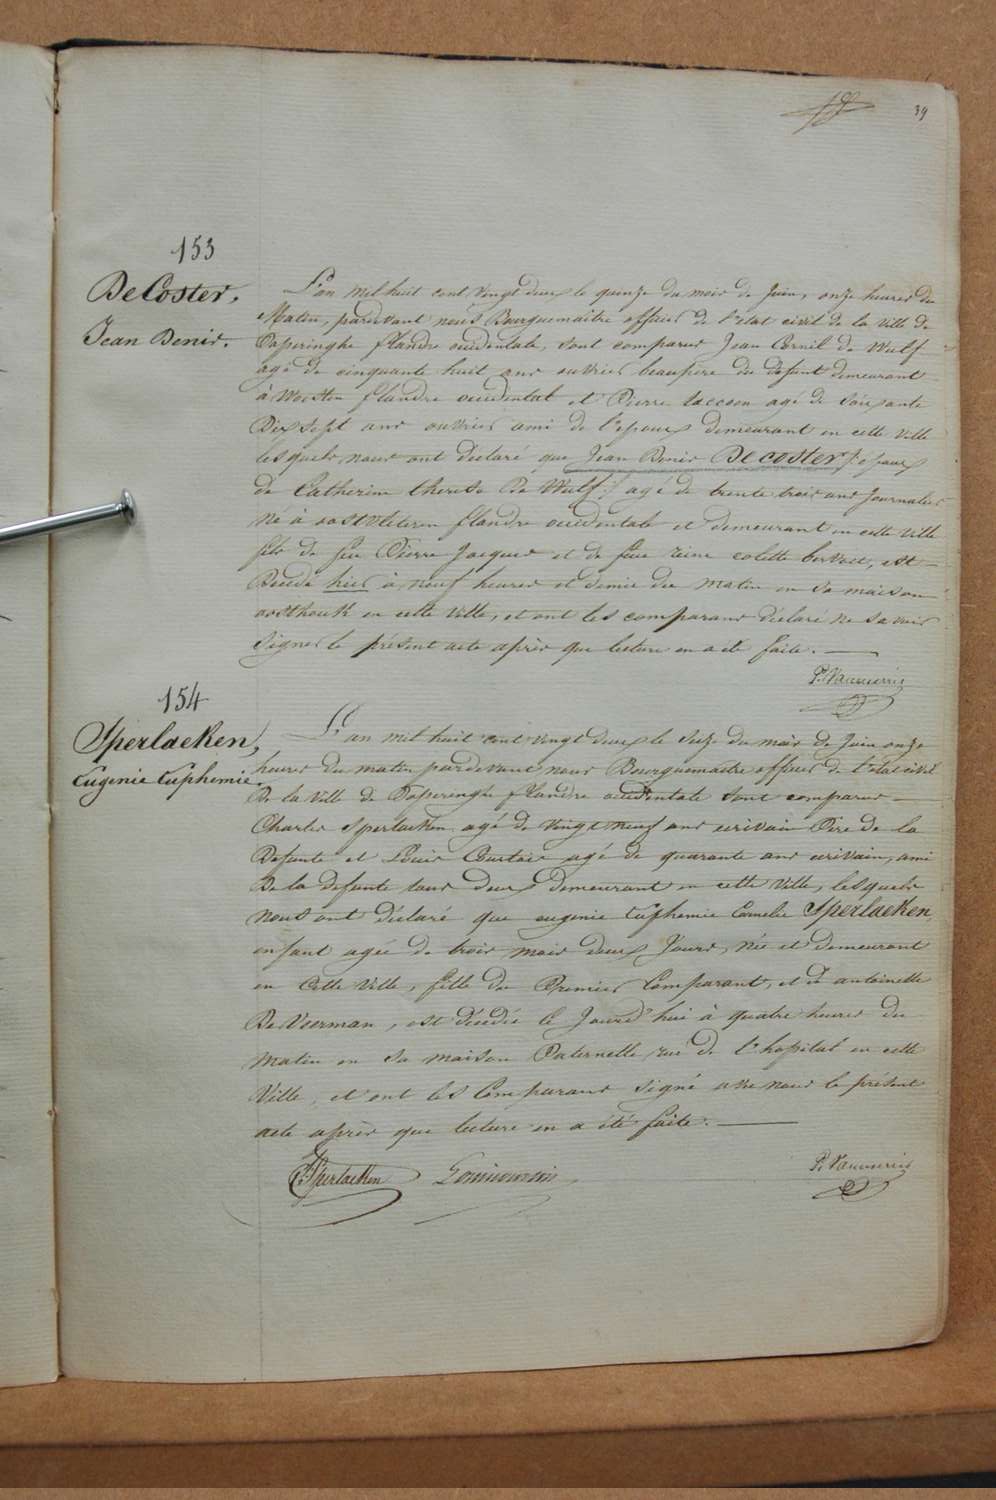 39
153
De Coster,
Jean Denis.
L'an mil huit cent vingt deux le quinze du mois de Juin, onze heures du
Matin, pardevant nous Bourguemaitre officier de l'etat civil de la ville de
Poperinghe flandre occidentale, sont comparus Jean Cornil de Wulf
agé de cinquante huit ans ouvrier beaupere du defunt demeurant
à Woesten flandre occidentale et Pierre Laccoen agé de soixante
Dix sept ans ouvrier ami de l'epoux demeurant en cette ville
lesquels nous ont déclaré que Jean Denis De Coster /: époux
de Catherine therese De Wulf :/ agé de trente trois ans Journalier
Né à oostvleteren flandre occidentale et demeurant en cette ville
fils de feu Pierre Jacques et de feue reine colette , est
Decédé hier à neuf heures et demie du matin en sa maison
oosthouk en cette ville, et ont les comparans déclaré ne savoir
signer le présent acte après que lecture en a été faite.
P. Vanmerris
154
Sperlaeken,
Eugenie Euphemie
L'an mil huit cent vingt deux le Seize du mois de Juin onze
heures du matin pardevant nous Bourguemaitre officier de l'etat civil
De la ville de Poperinghe flandre occidentale sont comparus
Charles Sperlaeken agé de vingt neuf ans ecrivain Père de la
Defunte et Louis Courtois agé de quarante ans ecrivain, ami
De la defunte tous deux Demeurant en cette Ville, lesquels
nous ont déclaré que eugenie Euphemie Camelie Sperlaeken,
enfant agée de trois mois deux Jours, née et demeurant
en cette ville, fille du Premier Comparant, et de antoinette
De Veerman, est décédée ce Jourd'hui à quatre heures du
matin en sa maison Paternelle, rue de l'hopital en cette
Ville, et ont les Comparans signé avec nous le présent
acte après que lecture en a été faite.
C. Sperlaeken Louis Courtois P. Vanmerris